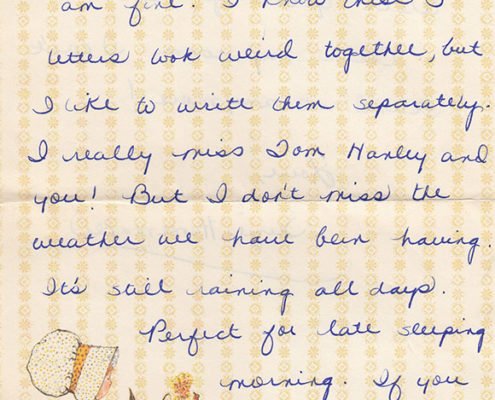 am fine. I know these 2
letters look weird together, but
I like to write them separately.
I really miss Tom Hanley and
you! But I don't miss the
weather we have been having.
It's still raining all days.
Perfect for late sleeping
morning. If you